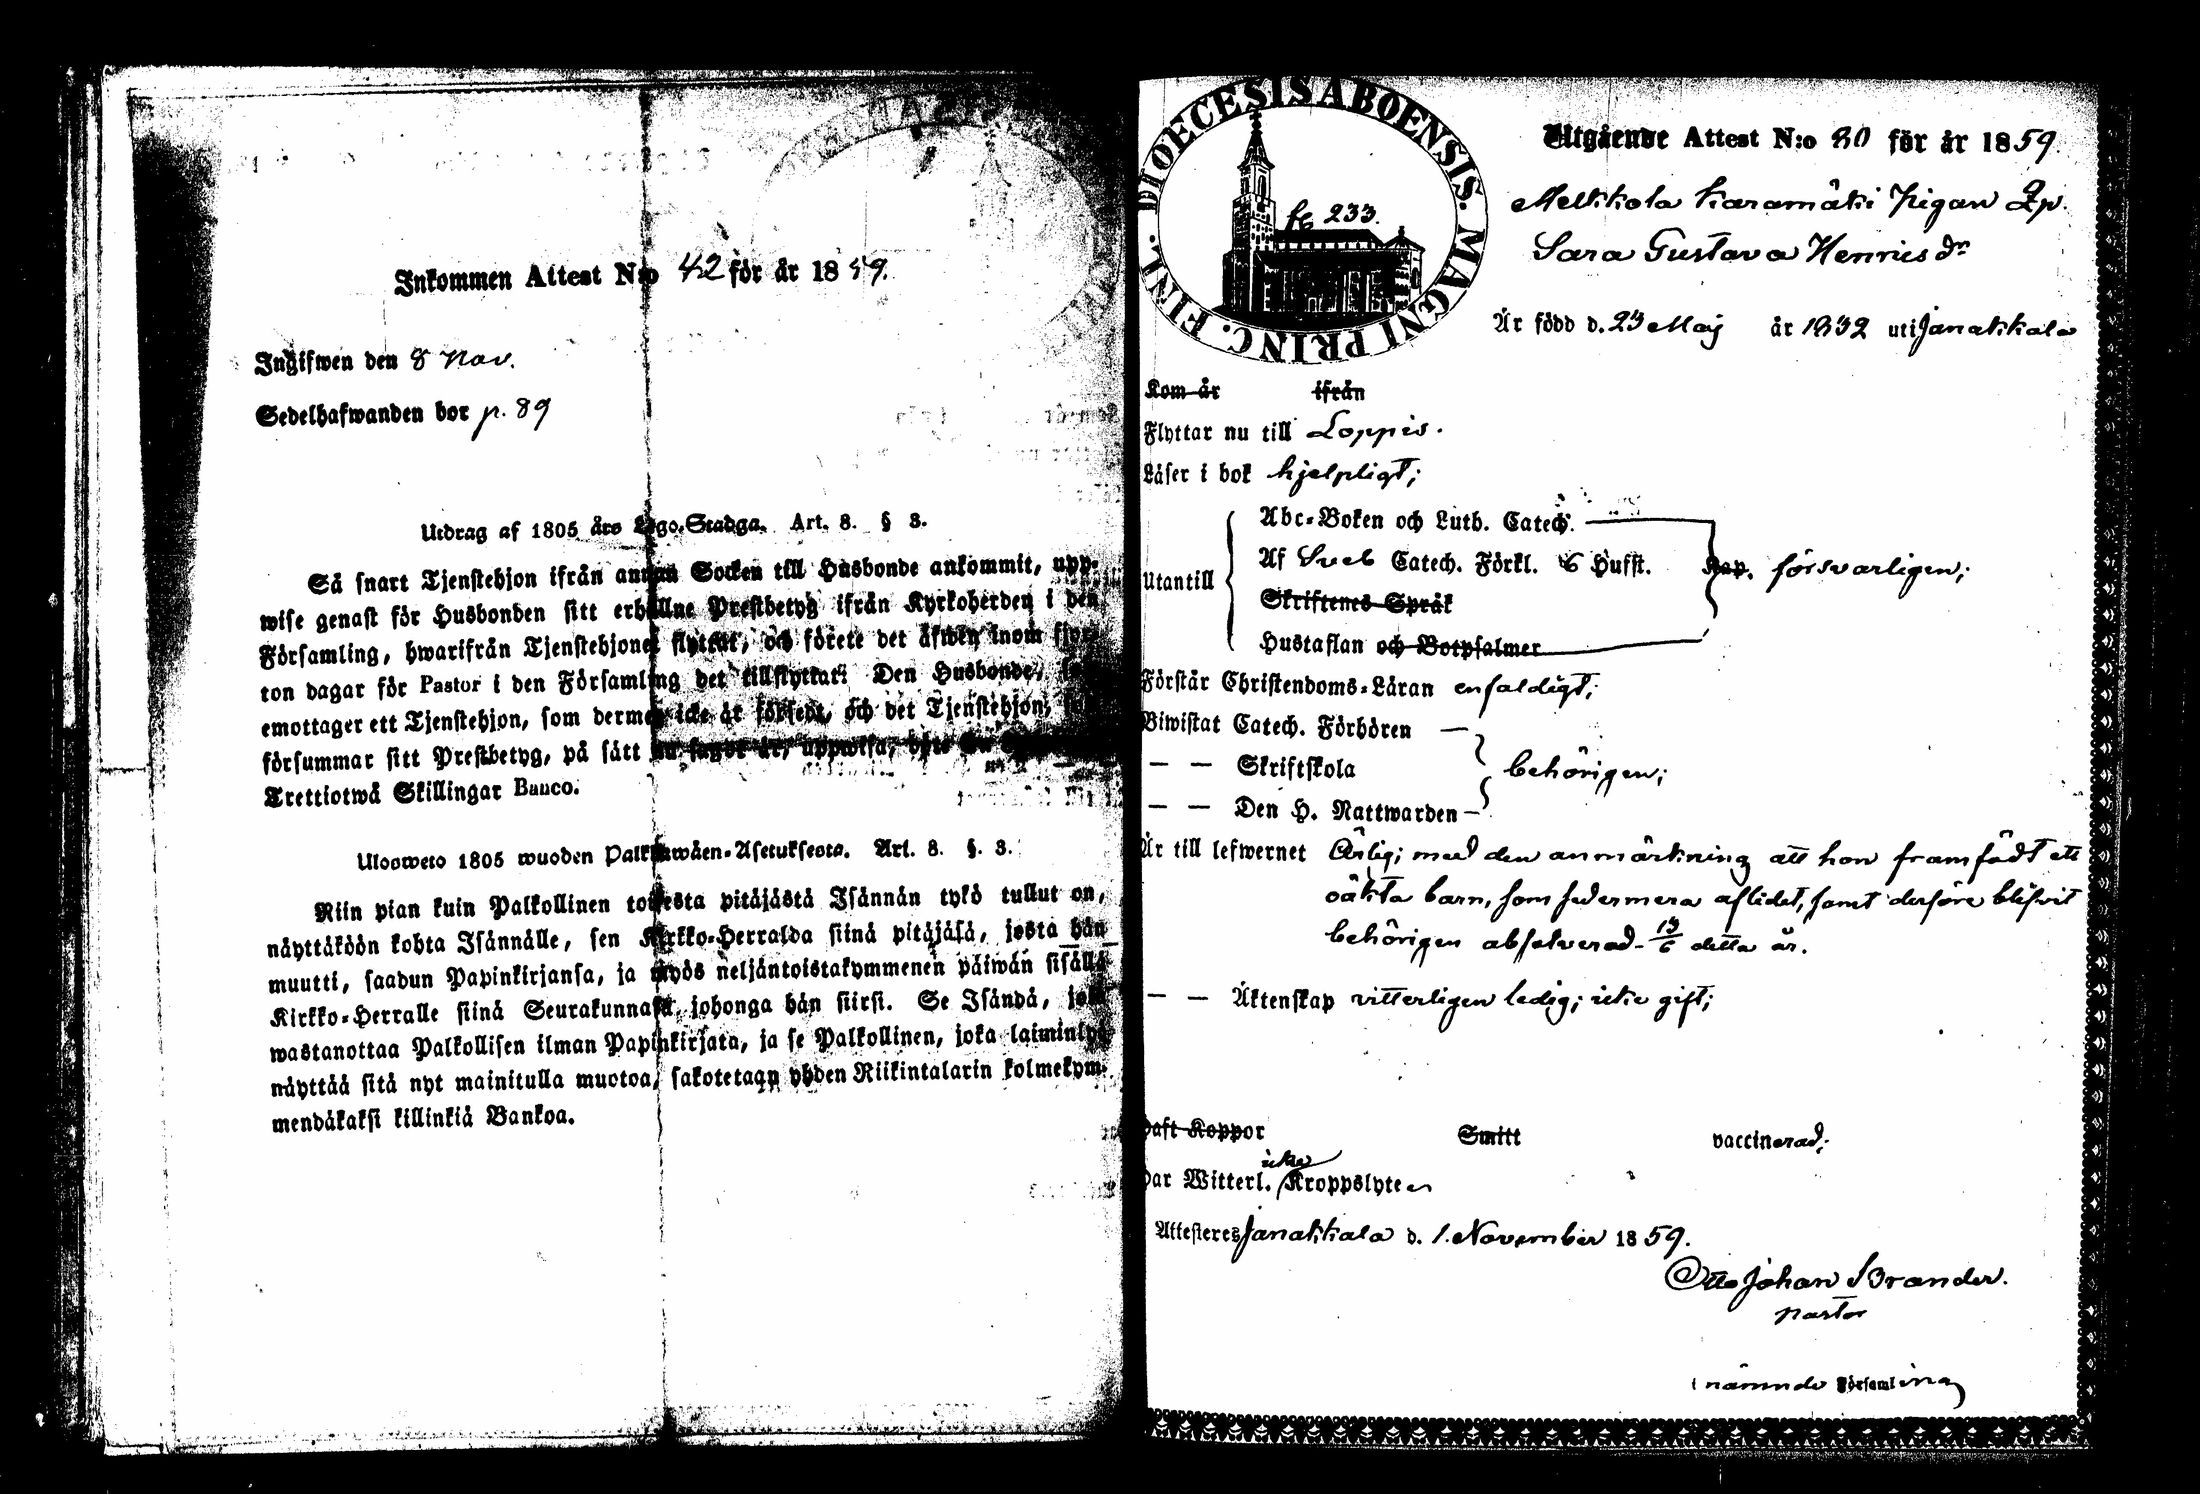 Inkommen Attest N:o 42 för år 1859.
Ingifwen den 8 Nov.
Sedelhafwanden bor p. 89
Utdrag af 1805 års Lego-Stadga. Art. 8. § 3.
Så snart Tjenstehjon ifrån annan Socken till Husbonde ankommit, upp-
wise genast för Husbonden sitt erhållne Prestbetyg ifrån Kyrkoherden i den
Församling, hwarifrån Tjenstehjonet flyttat, och förete det äfwen inom fjor-
ton dagar för Pastor i den Församling det tillflyttat: Den Husbonde,
emottager ett Tjenstehjon, som dermed icke är försedt, och det Tjenstehjon,
försummar sitt Prestbetyg, på sätt nu sagdt är, uppwisa,
Trettiotwå Skillingar Banco.
Ulosweto 1805 wuoden Palkkawäen-Asetuksesta. Art. 8. §. 3.
Niin pian kuin Palkollinen toisesta pitäjästä Isännän tykö tullut on,
näyttäköön kohta Isännälle, sen Kirkko-Herralda siinä pitäjäsä, josta hän
muutti, saadun Papinkirjansa, ja myös neljäntoistakymmenen päiwän sisällä
Kirkko-Herralle siinä Seurakunnasa, johonga hän siirsi. Se Isändä, joka
wastanottaa Palkollisen ilman Papinkirjata, ja se Palkollinen, joka laiminlyö
näyttää sitä nyt mainitulla muotoa, sakotetaan yhden Riikintalarin kolmekym-
mendäkaksi killinkiä Bankoa.
DIOECESIS ABOENSIS. MAGNI PRINC. FINL.
fg 233.
Utgående Attest N:o 80 för år 1859.
Melkkola Karamäki Pigan Qp.
Sara Gustava Henricsdr
Är född d. 23 Maj år 1832 uti Janakkala
Kom år ifrån
Flyttar nu till Loppis.
Läser i bok hjelpligt;
Utantill
Abc-Boken och Luth. Catech.
Af Sveb Catech. Förkl. 6 Hufst. Kap. försvarligen;
Skriftenes Språk
Hustaflan och Botpsalmer
Förstår Christendoms-Läran enfaldigt;
Biwistat Catech. Förhören
— — Skriftskola behörigen;
— — Den H. Nattwarden
Är till lefwernet Ärlig; med den anmärkning att hon framfödt ett
oäkta barn, som sedermera aflidit, samt derföre blifvit
behörigen absolverad 13/6 detta år.
— — Äktenskap vitterligen ledig; icke gift;
Haft Koppor Smitt vaccinerad;
Har Witterl. icke Kroppslyten
Attesteres Janakkala d. 1. November 1859.
Otto Johan Brander.
pastor
i nämnde Församling